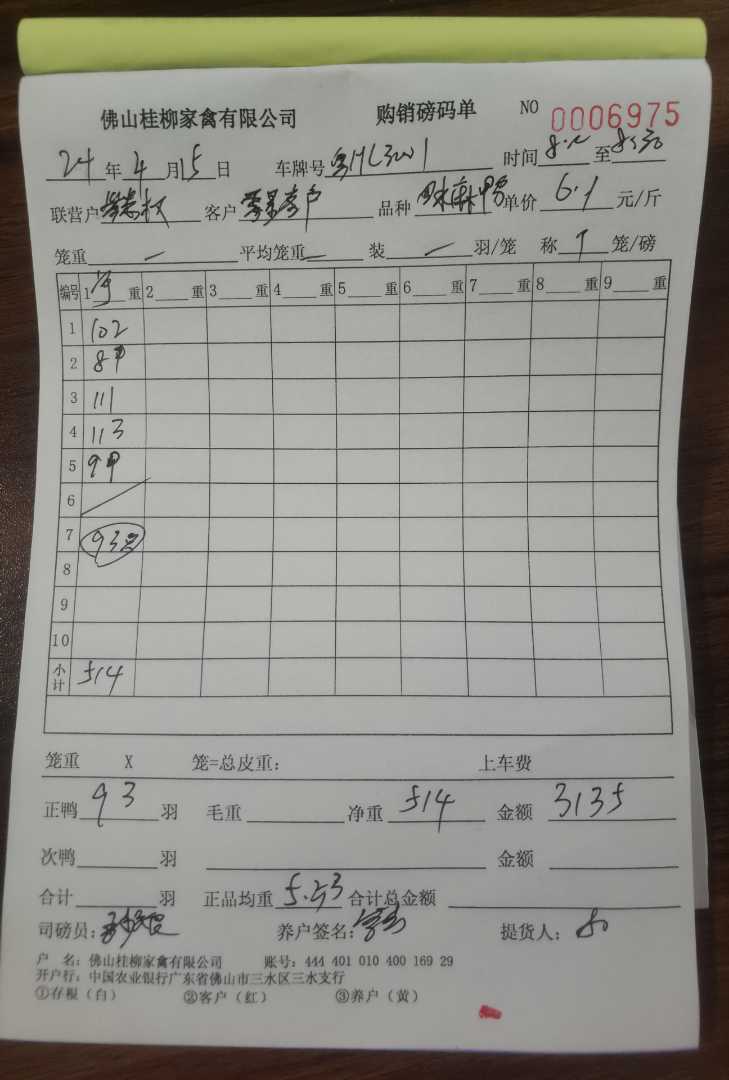 佛山桂柳家禽有限公司 购销磅码单 NO 0006975
24年4月15日 车牌号 时间 至
联营户 客户 品种 麻鸭 单价 6.1 元/斤
笼重 — 平均笼重 — 装 — 羽/笼 称 1 笼/磅
编号 1净重 2 重 3 重 4 重 5 重 6 重 7 重 8 重 9 重
1 102
2 89
3 111
4 113
5 99
6
7 93只
8
9
10
小计 514
笼重 X 笼=总皮重: 上车费
正鸭 93 羽 毛重 净重 514 金额 3135
次鸭 羽 金额
合计 羽 正品均重 5.53 合计总金额
司磅员: 养户签名: 提货人:
户 名: 佛山桂柳家禽有限公司 账号: 444 401 010 400 169 29
开户行: 中国农业银行广东省佛山市三水区三水支行
①存根(白) ②客户(红) ③养户(黄)